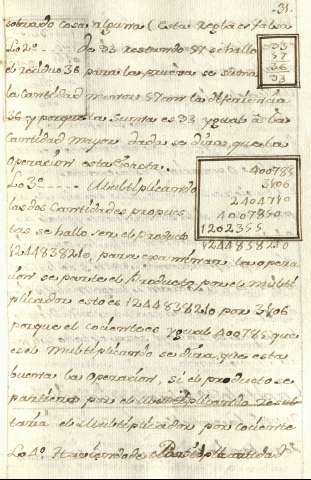 31.
sobrado cosa alguna (Esta Regla es falsa
Lo 2º --- De 93 restando 57 se halla
el residuo 36 para la prueva se suma
la Cantidad menor 57 con la diferiencia
36 y porque la Suma es 93 ygual a la
Cantidad mayor dada se dirá, que la
Operacion esta Exacta.
93
57
36
93
Lo 3º ---- Multiplicando
las dos Cantidades propues
tas se hallo ser el producto
1244838210, para examinar la opera
cion se parte el Producto por el Multi
plicador esto es 1244838210 por 3106
porque el cociente es ygual 400785 que
es el Multiplicando se dirá, que esta
buena la Operacion, si el producto se
partiere por el Multiplicando resul
taria el Multiplicador por cociente
400785
3106
2404710
4007850
1202355
1244838210
Lo 4º